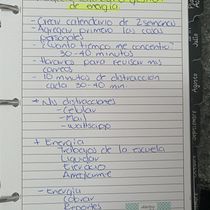 de energía
- Crear calendario de 2 semanas
- Agregar primero las cosas
personales
- ¿Cuánto tiempo me concentro?
30-40 minutos
- Horarios para revisar mis
correos
- 10 minutos de distracción
cada 30-40 min.
+ Mis distracciones
- Celular
- Mail
- Whatsapp
+ Energía
Trabajos de la escuela
Liquidar
Ejercicio
Arreglarme
- Energía
Cobrar
Reportes
Agosto